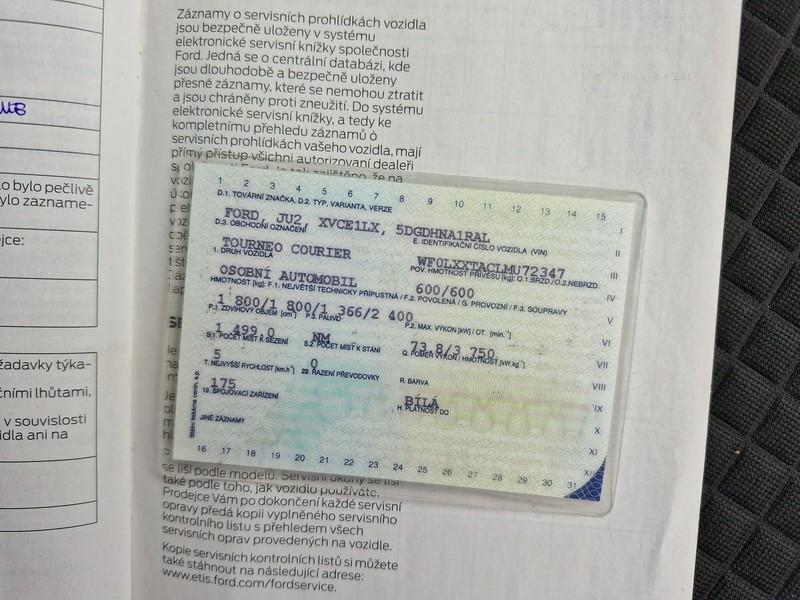 Záznamy o servisních prohlídkách vozidla
jsou bezpečně uloženy v systému
elektronické servisní knížky společnosti
Ford. Jedná se o centrální databázi, kde
jsou dlouhodobě a bezpečně uloženy
přesné záznamy, které se nemohou ztratit
a jsou chráněny proti zneužití. Do systému
elektronické servisní knížky, a tedy ke
kompletnímu přehledu záznamů o
servisních prohlídkách vašeho vozidla, mají
přímý přístup všichni autorizovaní dealeři
lo bylo pečlivě
ylo zazname-
ejce:
žadavky týka-
čními lhůtami,
v souvislosti
idla ani na
1 2 3 4 5 6 7 8 9 10 11 12 13 14 15
D.1. TOVÁRNÍ ZNAČKA, D.2. TYP, VARIANTA, VERZE
FORD, JU2, XVCE1LX, 5DGDHNA1RAL
D.3. OBCHODNÍ OZNAČENÍ E. IDENTIFIKAČNÍ ČÍSLO VOZIDLA (VIN)
TOURNEO COURIER WF0LXXTACLMU72347
1. DRUH VOZIDLA POV. HMOTNOST PŘÍVĚSU [kg]: O.1.BRZD./O.2.NEBRZD.
OSOBNÍ AUTOMOBIL 600/600
HMOTNOST [kg]: F.1. NEJVĚTŠÍ TECHNICKY PŘÍPUSTNÁ / F.2. POVOLENÁ / G. PROVOZNÍ / F.3. SOUPRAVY
1 800/1 800/1 366/2 400
P.1. ZDVIHOVÝ OBJEM [cm³] P.3. PALIVO P.2. MAX. VÝKON [kW] / OT. [min.⁻¹]
1 499,0 NM 73,8/3 750
S.1. POČET MÍST K SEZENÍ S.2. POČET MÍST K STÁNÍ Q. POMĚR VÝKON / HMOTNOST [kW.kg⁻¹]
5 0
T. NEJVYŠŠÍ RYCHLOST [km.h⁻¹] 29. ŘAZENÍ PŘEVODOVKY R. BARVA
175 BÍLÁ
19. SPOJOVACÍ ZAŘÍZENÍ H. PLATNOST DO
JINÉ ZÁZNAMY
I
II
III
IV
V
VI
VII
VIII
IX
X
XI
XII
16 17 18 19 20 21 22 23 24 25 26 27 28 29 30 31
se liší podle modelů. Servisní úkony se liší
také podle toho, jak vozidlo používáte.
Prodejce Vám po dokončení každé servisní
opravy předá kopii vyplněného servisního
kontrolního listu s přehledem všech
servisních oprav provedených na vozidle.
Kopie servisních kontrolních listů si můžete
také stáhnout na následující adrese:
www.etis.ford.com/fordservice.